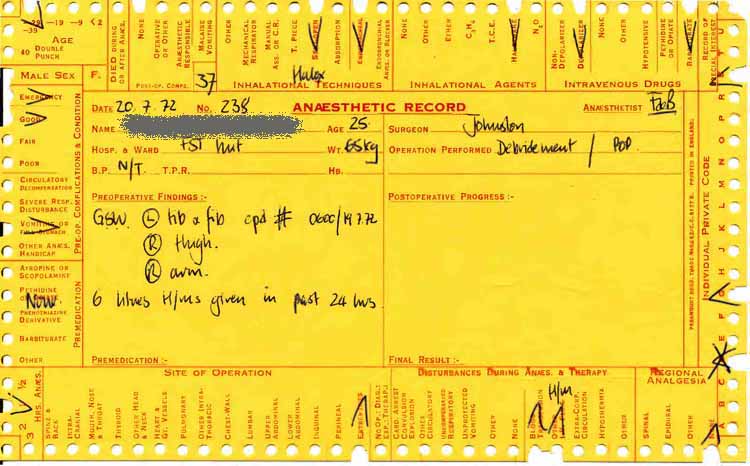 -29 -19 -9 <2
-39
AGE
40 DOUBLE PUNCH
DIED DURING OR AFTER ANÆS.
NONE
OPERATIVE OR OTHER
ANÆSTHETIC RESPONSIBLE
MALAISE VOMITING
OTHER
MECHANICAL RESPIRATOR
MANUAL ASS. OR C.R.
T. PIECE
ABSORPTION
ENDOBRONCHIAL ANÆS. OR BLOCKER
NONE
OTHER
ETHER
N2O
NON-DEPOLARIZER
DEPOLARIZER
NONE
OTHER
HYPOTENSIVE
PETHIDINE OR OPIATE
BARBITURATE
RECORD OF SPECIAL INTEREST
MALE SEX F.
POST-OP. COMPS.
37
Halox
INHALATIONAL TECHNIQUES
INHALATIONAL AGENTS
INTRAVENOUS DRUGS
DATE 20.7.72 No. 238 ANÆSTHETIC RECORD ANÆSTHETIST
NAME AGE 25 SURGEON Johnston
HOSP. & WARD FST hut WT. 65kg OPERATION PERFORMED Debridement / POP
B.P. N/T. T.P.R. HB.
PREOPERATIVE FINDINGS :- POSTOPERATIVE PROGRESS :-
GSW (L) tib & fib cpd # 0600/19.7.72
(R) thigh.
(R) arm.
6 litres H/ms given in past 24 hrs
PREMEDICATION :- FINAL RESULT :-
EMERGENCY
GOOD
FAIR
POOR
CIRCULATORY DECOMPENSATION
SEVERE RESP. DISTURBANCE
VOMITING OR FULL STOMACH
OTHER ANÆS. HANDICAP
PRE-OP. COMPLICATIONS & CONDITION
ATROPINE OR SCOPOLAMINE
PETHIDINE
None
PHENOTHIAZINE DERIVATIVE
BARBITURATE
OTHER
PREMEDICATION
PRINTED IN ENGLAND.
INDIVIDUAL PRIVATE CODE
A B C D E F G H I J K L M N O P R T U
SITE OF OPERATION
DISTURBANCES DURING ANÆS. & THERAPY
REGIONAL ANALGESIA
H/m
½ 2 3 HRS. ANÆS.
SPINE & BACK
INTRA-CRANIAL
MOUTH, NOSE & THROAT
THYROID
OTHER HEAD & NECK
HEART & GT. VESSELS
PULMONARY
OTHER INTRA-THORACIC
CHEST-WALL
LUMBAR
UPPER ABDOMINAL
LOWER ABDOMINAL
INGUINAL
PERINEAL
EXTREMITIES
NO OP. DIS. EXP. THERAPY
CARD ARREST CONVULSION EXPLOSION
OTHER CIRCULATORY
UNEXPECTED VOMITING
OTHER
NONE
EXTRA-CORP. CIRCULATION
HYPOTHERMIA
OTHER
SPINAL
EPIDURAL
OTHER